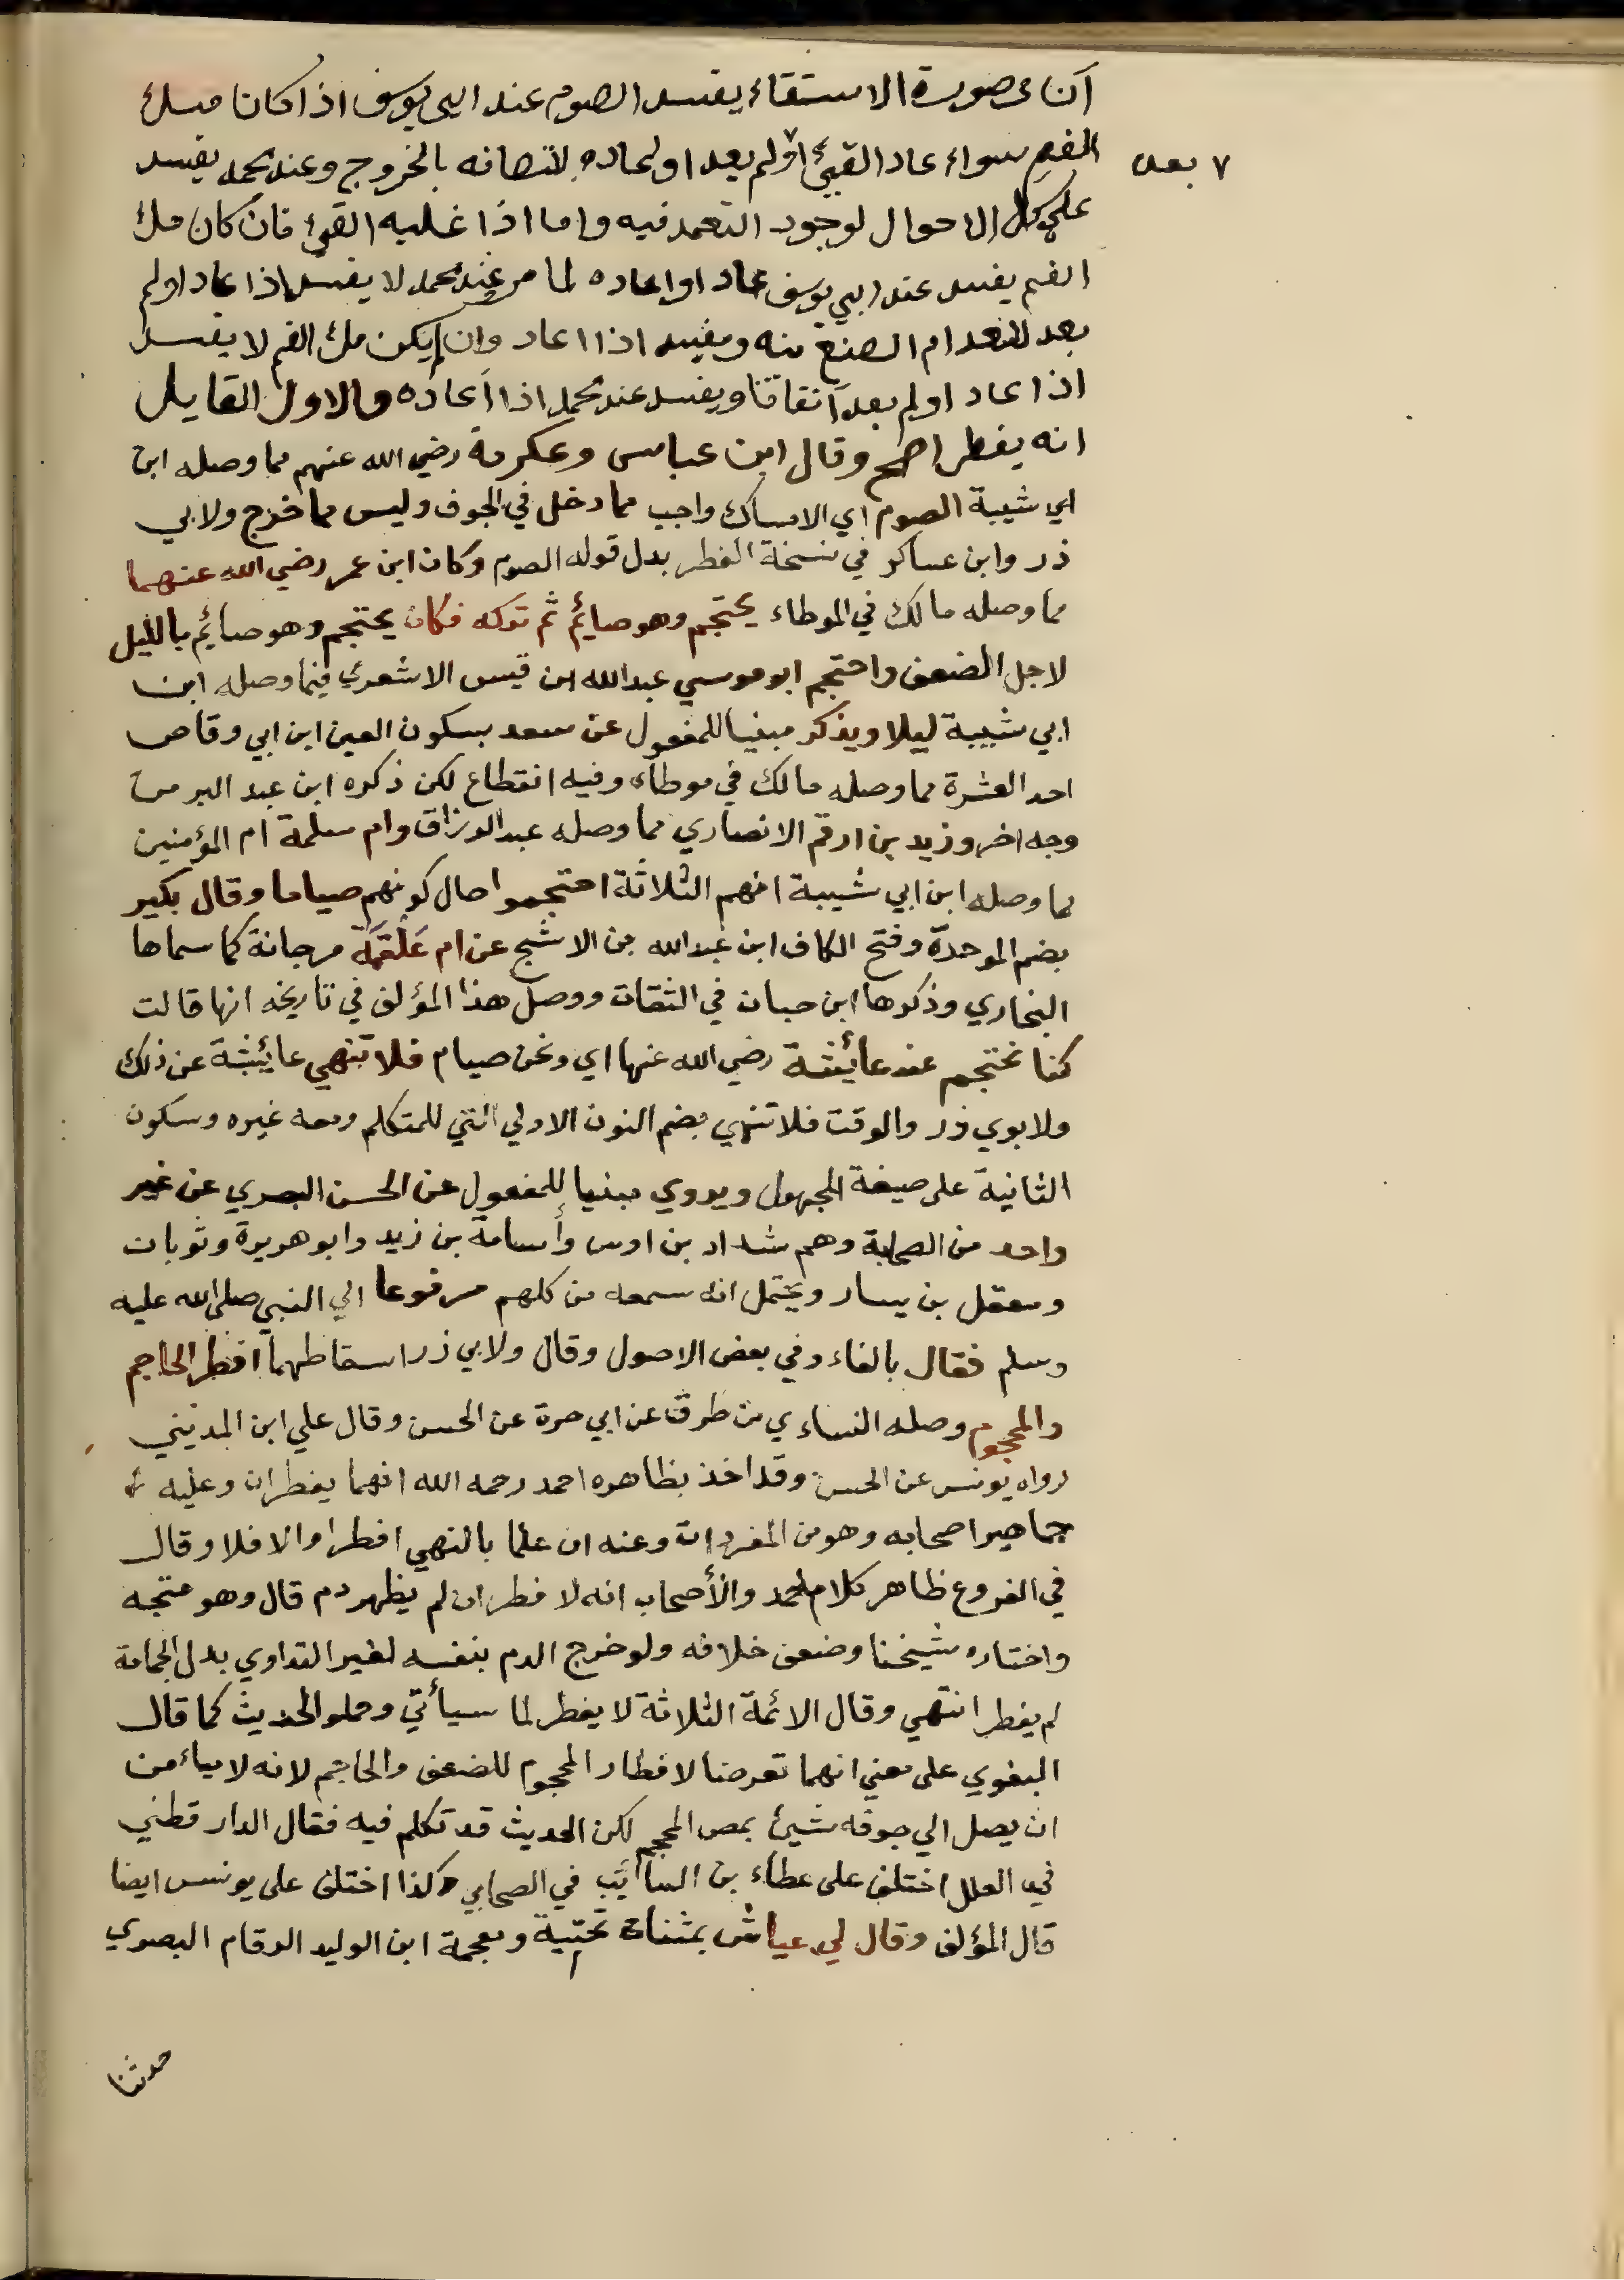 ان في صورة الاستقاء يفسد الصوم عند ابي يوسف اذا كان ملئ
الفم سواء عاد القيئ او لم يعد او اعاده لاتصافه بالخروج وعند محمد يفسد
٧ بعد
على كل الاحوال لوجود التعمد فيه واما اذا غلبه القئ فان كان ملئ
الفم يفسد عند ابي يوسف عاد او اعاده لما مر عند محمد لا يفسد اذا عاد او لم
يعد لانعدام الصنع منه ويفسد اذا اعاد وان لم يكن ملئ الفم لا يفسد
اذا عاد او لم يعد اتفاقا ويفسد عند محمد اذا اعاده والاول القايل
انه يفطر اصح وقال ابن عباس وعكرمة رضي الله عنهم مما وصله ابن
ابي شيبة الصوم اي الامساك واجب مما دخل في الجوف وليس مما خرج ولابي
ذر وابن عساكر في نسخة الفطر بدل قوله الصوم وكان ابن عمر رضي الله عنهما
مما وصله مالك في الموطاء يحتجم وهو صايم ثم تركه فكان يحتجم وهو صايم بالليل
لاجل الضعف واحتجم ابو موسي عبدالله ابن قيس الاشعري فيما وصله ابن
ابي شيبة ليلا ويذكر مبنيا للمفعول عن سعد بسكون العين ابن ابي وقاص
احد العشرة مما وصله مالك في موطاه وفيه انقطاع لكن ذكره ابن عبد البر من
وجه اخر وزيد بن ارقم الانصاري مما وصله عبد الرزاق وام سلمة ام المؤمنين
مما وصله ابن ابي شيبة انهم الثلاثة احتجموا حال كونهم صياما وقال بكير
بضم الموحدة وفتح الكاف ابن عبدالله بن الاشج عن ام عَلْقَمَة مرجانة كما سماها
البخاري وذكرها ابن حبان في الثقات ووصل هذا المؤلف في تاريخه انها قالت
كنا نحتجم عند عائشة رضي الله عنها اي ونحن صيام فلا تنهي عائشة عن ذلك
ولابوي ذر والوقت فلا ننهي بضم النون الاولي التي للمتكلم ومعه غيره وسكون
الثانية على صيغة المجهول ويروي مبنيا للمفعول عن الحسن البصري عن غير
واحد من الصحابة وهم شداد بن اوس وأسامة بن زيد وابو هريرة وثوبان
ومعقل بن يسار ويحتمل انه سمعه من كلهم مرفوعا الي النبي صلى الله عليه
وسلم فقال بالفاء وفي بعض الاصول وقال ولابي ذر اسقاطهما افطر الحاجم
والمحجوم وصله النساءي من طرق عن ابي حرة عن الحسن وقال علي ابن المديني
رواه يونس عن الحسن وقد اخذ بظاهره احمد رحمه الله انهما يفطران وعليه
جماهير اصحابه وهو من المفردات وعنه ان علما بالنهي افطرا والا فلا وقال
في الفروع ظاهر كلام احمد والأصحاب انه لا فطر ان لم يظهر دم قال وهو متجه
واختاره شيخنا وضعف خلافه ولو خرج الدم بنفسه لغير التداوي بدل الحجامة
لم يفطر انتهي وقال الائمة الثلاثة لا يفطر لما سيأتي وحملو الحديث كما قال
البغوي على معني انهما تعرضا لافطار المحجوم للضعف والحاجم لانه لا ياءمن
ان يصل الي جوفه شيئ بمص المحجم لكن الحديث قد تكلم فيه فقال الدار قطني
في العلل اختلف على عطاء بن السائب في الصحابي وكذا اختلف على يونس ايضا
قال المؤلف وقال لي عياش بمثناة تحتية ومعجمة ابن الوليد الرقام البصري
حدثنا